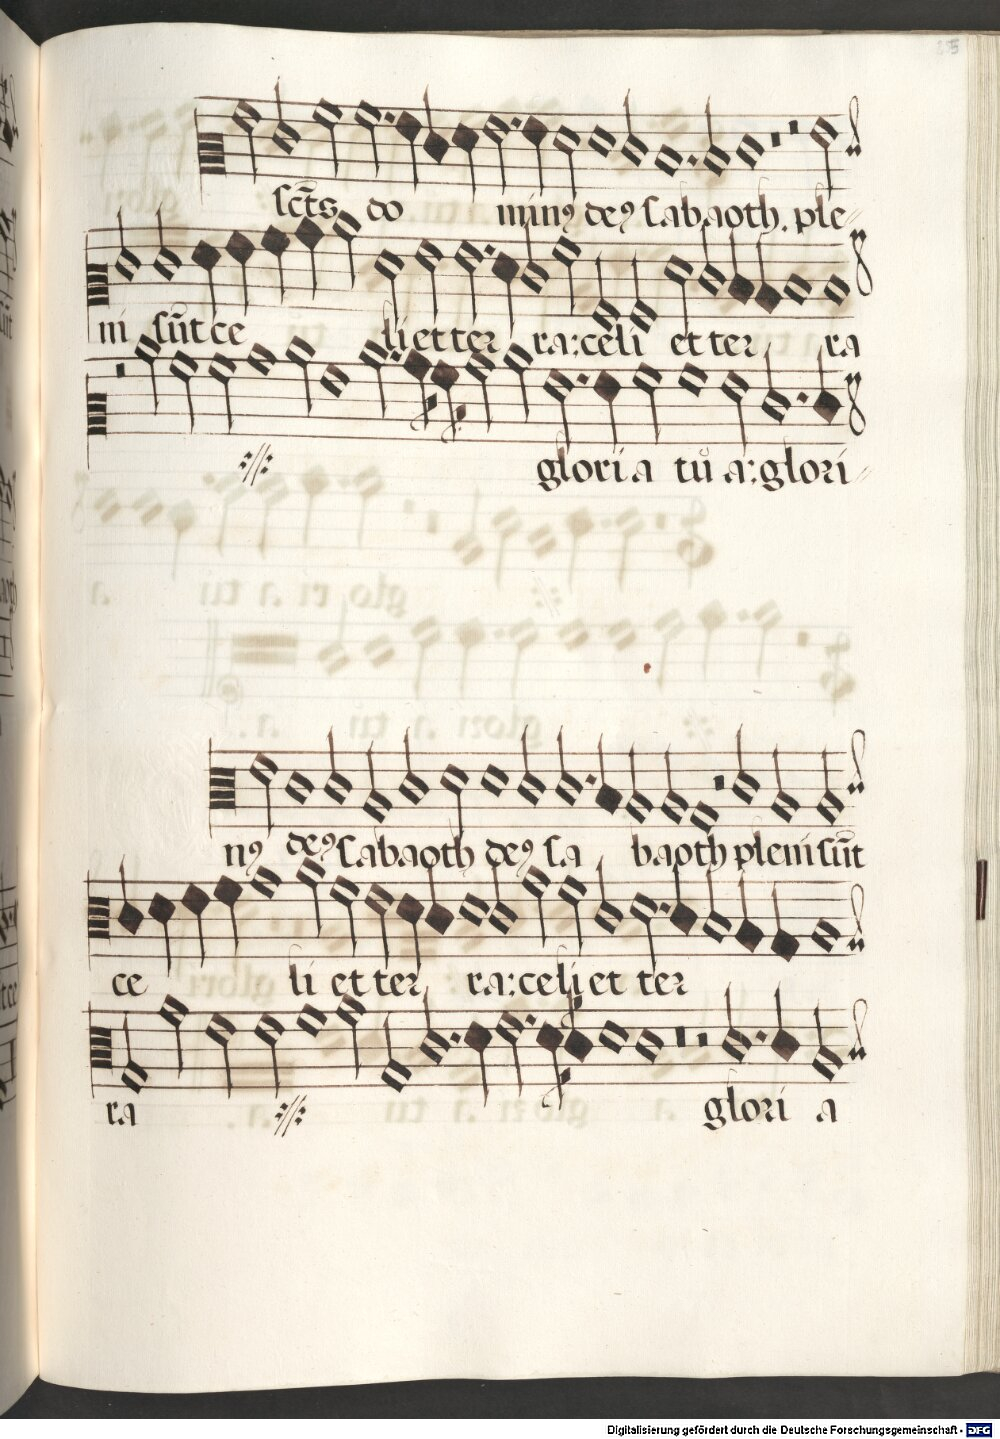 sc̄ts do minꝰ deꝰ sabaoth. ple
ni su̅t ce li et ter ra: celi et ter ra
gloria tu a: glori
nꝰ deꝰ sabaoth deꝰ sa baoth pleni su̅t
ce li et ter ra: celi et ter
ra glori a
Digitalisierung gefördert durch die Deutsche Forschungsgemeinschaft - DFG